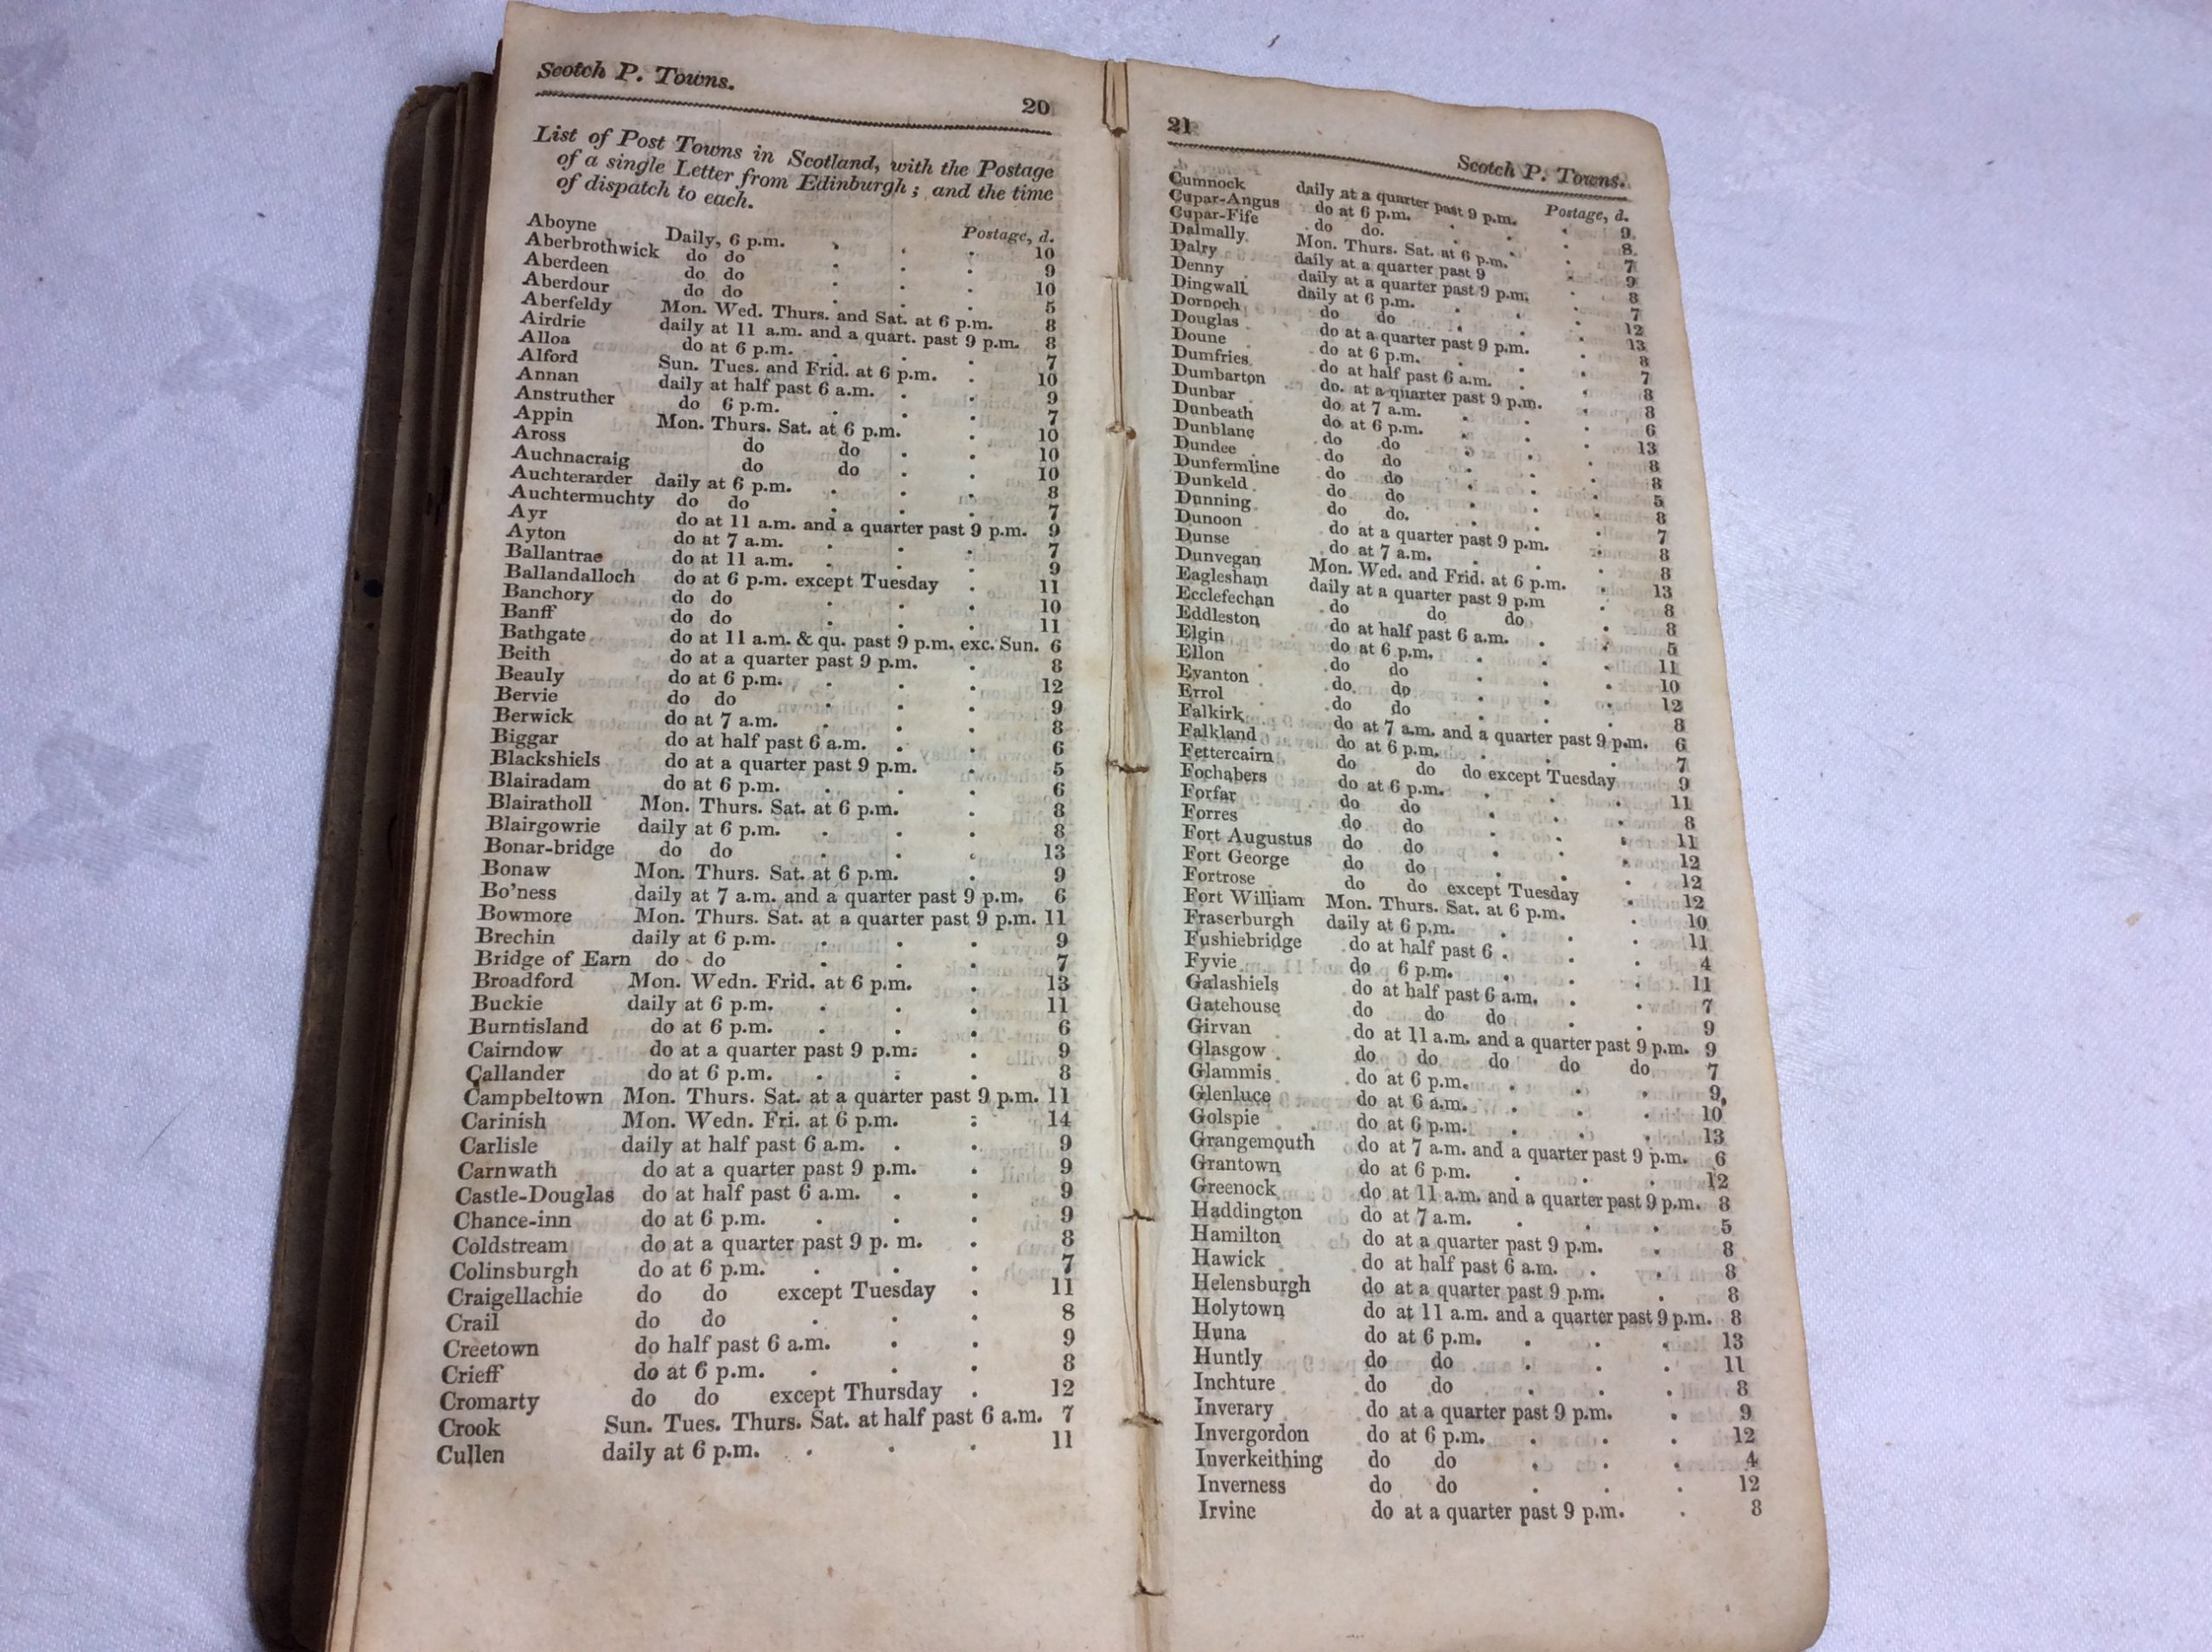 Scotch P. Towns.
20
List of Post Towns in Scotland, with the Postage
of a single Letter from Edinburgh; and the time
of dispatch to each.
Postage, d.
Aboyne Daily, 6 p.m. . . . 10
Aberbrothwick do do . . . 9
Aberdeen do do . . . 10
Aberdour do do . . . 5
Aberfeldy Mon. Wed. Thurs. and Sat. at 6 p.m. 8
Airdrie daily at 11 a.m. and a quart. past 9 p.m. 8
Alloa do at 6 p.m. . . . 7
Alford Sun. Tues. and Frid. at 6 p.m. . 10
Annan daily at half past 6 a.m. . . 9
Anstruther do 6 p.m. . . . 7
Appin Mon. Thurs. Sat. at 6 p.m. . 10
Aross do do . . 10
Auchnacraig do do . . 10
Auchterarder daily at 6 p.m. . . . 8
Auchtermuchty do do . . . 7
Ayr do at 11 a.m. and a quarter past 9 p.m. 9
Ayton do at 7 a.m. . . . 7
Ballantrae do at 11 a.m. . . . 9
Ballandalloch do at 6 p.m. except Tuesday . 11
Banchory do do . . . 10
Banff do do . . . 11
Bathgate do at 11 a.m. & qu. past 9 p.m. exc. Sun. 6
Beith do at a quarter past 9 p.m. . 8
Beauly do at 6 p.m. . . . 12
Bervie do do . . . 9
Berwick do at 7 a.m. . . . 8
Biggar do at half past 6 a.m. . . 6
Blackshiels do at a quarter past 9 p.m. . 5
Blairadam do at 6 p.m. . . . 6
Blairatholl Mon. Thurs. Sat. at 6 p.m. . 8
Blairgowrie daily at 6 p.m. . . . 8
Bonar-bridge do do . . . 13
Bonaw Mon. Thurs. Sat. at 6 p.m. . 9
Bo'ness daily at 7 a.m. and a quarter past 9 p.m. 6
Bowmore Mon. Thurs. Sat. at a quarter past 9 p.m. 11
Brechin daily at 6 p.m. . . . 9
Bridge of Earn do do . . . 7
Broadford Mon. Wedn. Frid. at 6 p.m. . 13
Buckie daily at 6 p.m. . . . 11
Burntisland do at 6 p.m. . . . 6
Cairndow do at a quarter past 9 p.m. . 9
Callander do at 6 p.m. . . . 8
Campbeltown Mon. Thurs. Sat. at a quarter past 9 p.m. 11
Carinish Mon. Wedn. Fri. at 6 p.m. : 14
Carlisle daily at half past 6 a.m. . . 9
Carnwath do at a quarter past 9 p.m. . 9
Castle-Douglas do at half past 6 a.m. . . 9
Chance-inn do at 6 p.m. . . . 9
Coldstream do at a quarter past 9 p. m. . 8
Colinsburgh do at 6 p.m. . . . 7
Craigellachie do do except Tuesday . 11
Crail do do . . . 8
Creetown do half past 6 a.m. . . 9
Crieff do at 6 p.m. . . . 8
Cromarty do do except Thursday . 12
Crook Sun. Tues. Thurs. Sat. at half past 6 a.m. 7
Cullen daily at 6 p.m. . . . 11
21
Scotch P. Towns.
Postage, d.
Cumnock daily at a quarter past 9 p.m. . 9
Cupar-Angus do at 6 p.m. . . . 8
Cupar-Fife do do. . . . 7
Dalmally Mon. Thurs. Sat. at 6 p.m. . 9
Dalry daily at a quarter past 9 . 8
Denny daily at a quarter past 9 p.m. . 7
Dingwall daily at 6 p.m. . . . 12
Dornoch do do . . . 13
Douglas do at a quarter past 9 p.m. . 8
Doune do at 6 p.m. . . . 7
Dumfries do at half past 6 a.m. . . 8
Dumbarton do. at a quarter past 9 p.m. . 8
Dunbar do at 7 a.m. . . . 6
Dunbeath do at 6 p.m. . . . 13
Dunblane do do . . . 8
Dundee do do . . . 8
Dunfermline do do . . . 5
Dunkeld do do . . . 8
Dunning do do. . . . 7
Dunoon do at a quarter past 9 p.m. . 8
Dunse do at 7 a.m. . . . 8
Dunvegan Mon. Wed. and Frid. at 6 p.m. . 13
Eaglesham daily at a quarter past 9 p.m . 8
Ecclefechan do do do . 8
Eddleston do at half past 6 a.m. . . 5
Elgin do at 6 p.m. . . . 11
Ellon do do . . . 10
Evanton do. do . . . 12
Errol do do . . . 8
Falkirk do at 7 a.m. and a quarter past 9 p.m. 6
Falkland do at 6 p.m. . . . 7
Fettercairn do do do except Tuesday 9
Fochabers do at 6 p.m. . . . 11
Forfar do do . . . 8
Forres do do . . . 11
Fort Augustus do do . . . 12
Fort George do do . . . 12
Fortrose do do except Tuesday . 12
Fort William Mon. Thurs. Sat. at 6 p.m. . 10
Fraserburgh daily at 6 p.m. . . . 11
Fushiebridge do at half past 6 . . . 4
Fyvie do 6 p.m. . . . 11
Galashiels do at half past 6 a.m. . . 7
Gatehouse do do do . . 9
Girvan do at 11 a.m. and a quarter past 9 p.m. 9
Glasgow do do do do do 7
Glammis do at 6 p.m. . . . 9
Glenluce do at 6 a.m. . . . 10
Golspie do at 6 p.m. . . . 13
Grangemouth do at 7 a.m. and a quarter past 9 p.m. 6
Grantown do at 6 p.m. . . . 12
Greenock do at 11 a.m. and a quarter past 9 p.m. 8
Haddington do at 7 a.m. . . . 5
Hamilton do at a quarter past 9 p.m. . 8
Hawick do at half past 6 a.m. . . 8
Helensburgh do at a quarter past 9 p.m. . 8
Holytown do at 11 a.m. and a quarter past 9 p.m. 8
Huna do at 6 p.m. . . . 13
Huntly do do . . . 11
Inchture do do . . . 8
Inverary do at a quarter past 9 p.m. . 9
Invergordon do at 6 p.m. . . . 12
Inverkeithing do do . . . 4
Inverness do do . . . 12
Irvine do at a quarter past 9 p.m. . 8